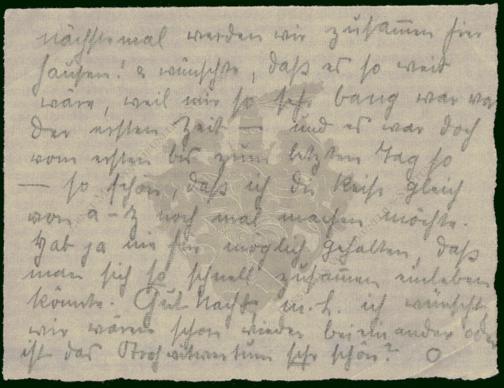 nächstemal werden wir zusammen hier
hausen! & wünschte, daß es so weit
wäre, weil mir so sehr bang war vor
der ersten Zeit — und es war doch
vom ersten bis zum letzten Tag so
— so schön, daß ich die Reise gleich
von a-z noch mal machen möchte.
Hab ja nie für möglich gehalten, daß
man sich so schnell zusammen einleben
könnte. Gut Nacht m. L. ich wünscht
wir wären schon wieder beieinander oder
ist das Strohwitwertum sehr schön? O